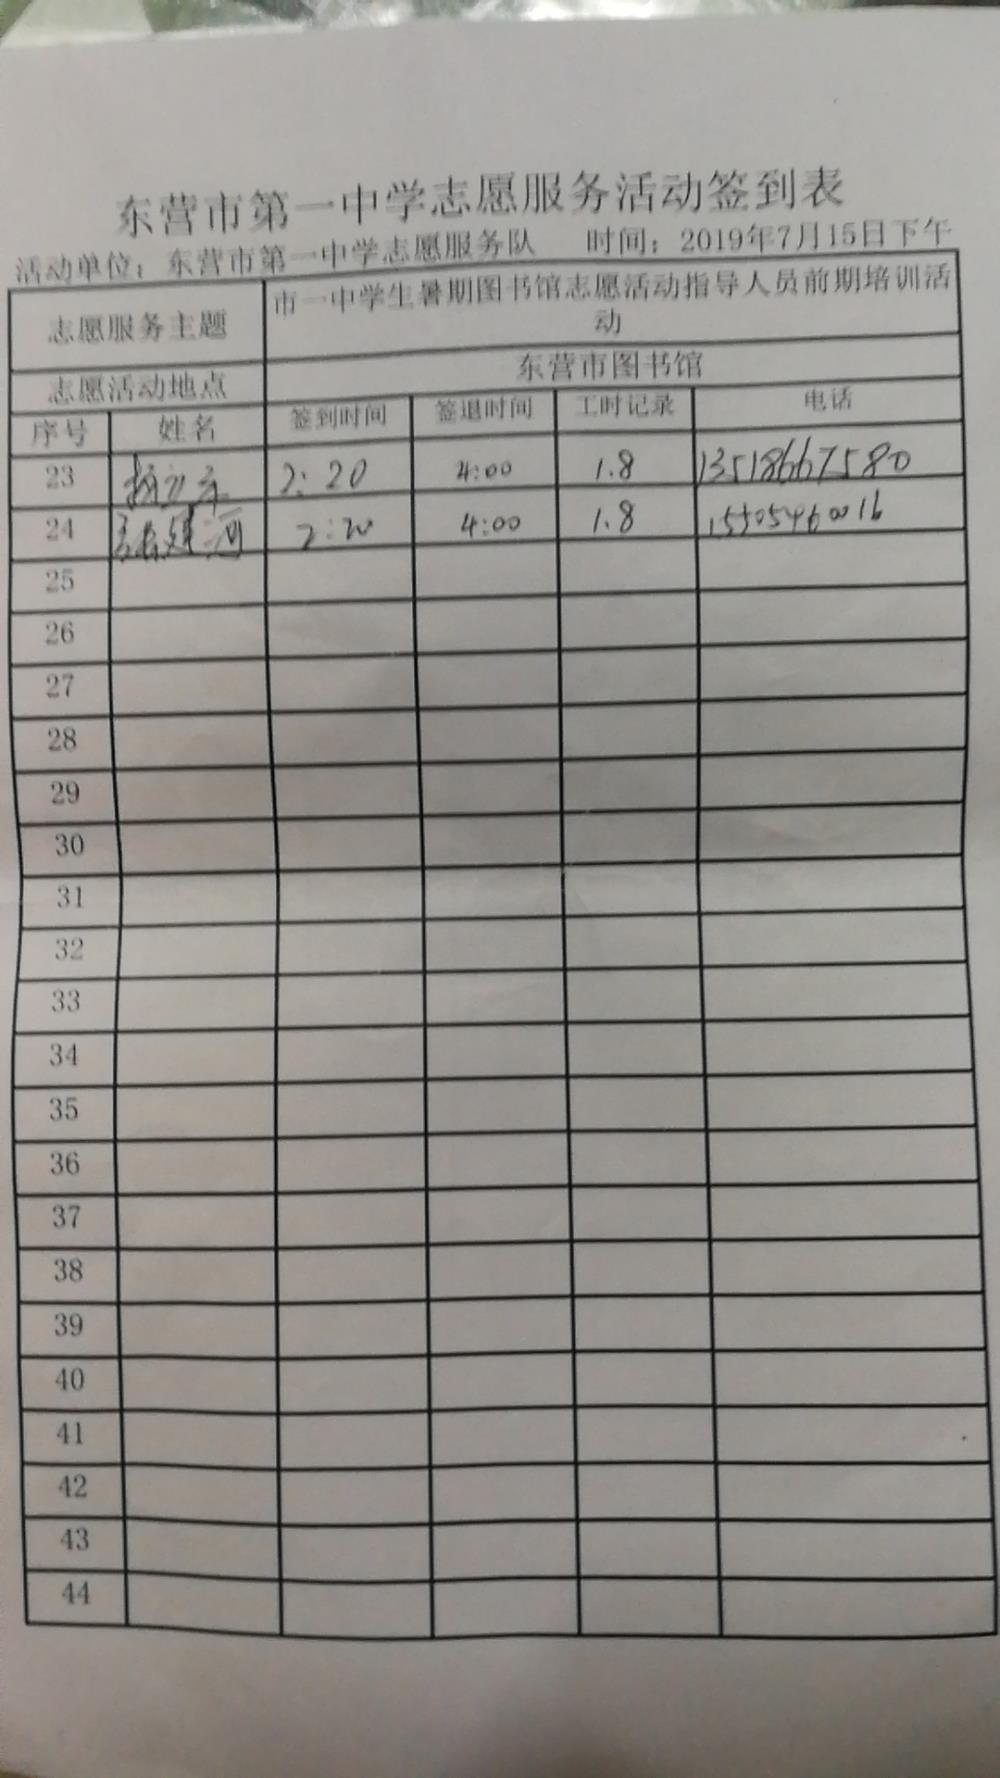 东营市第一中学志愿服务活动签到表
活动单位：东营市第一中学志愿服务队 时间：2019年7月15日下午
志愿服务主题 市一中学生暑期图书馆志愿活动指导人员前期培训活动
志愿活动地点 东营市图书馆
序号 姓名 签到时间 签退时间 工时记录 电话
23 2:20 4:00 1.8 13518667580
24 2:20 4:00 1.8 15505460016
25
26
27
28
29
30
31
32
33
34
35
36
37
38
39
40
41
42
43
44